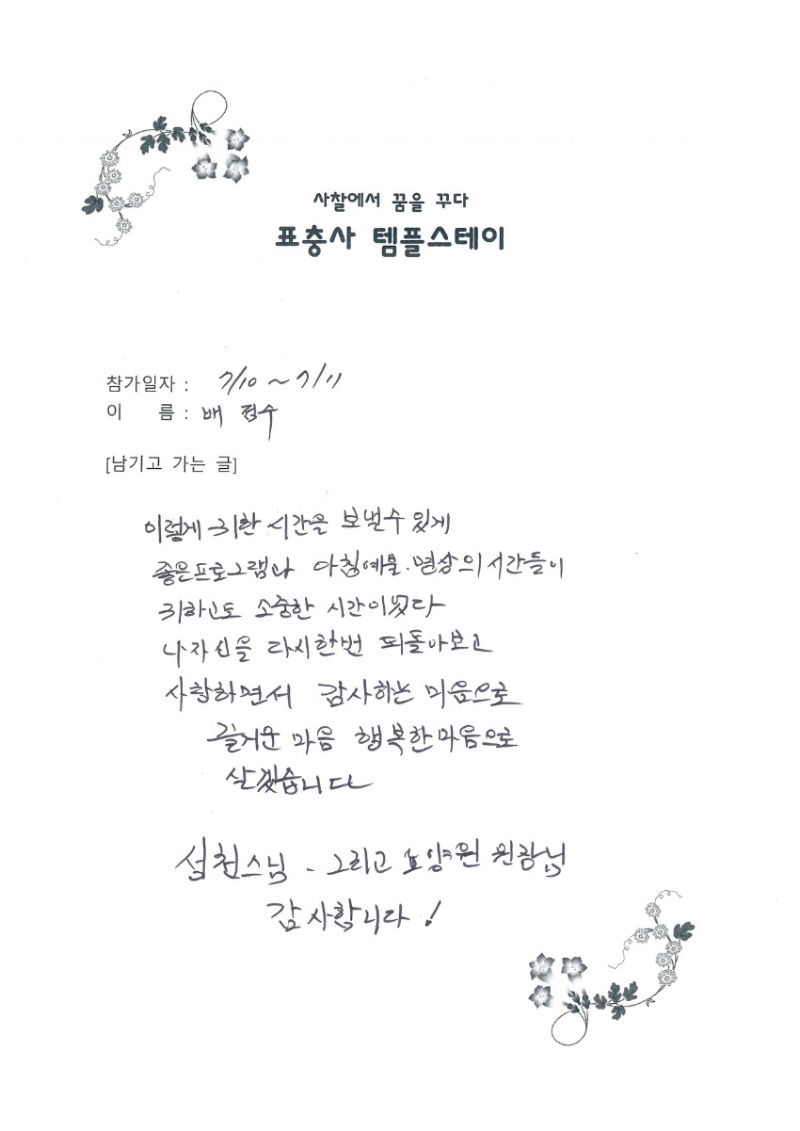 사찰에서 꿈을 꾸다
표충사 템플스테이
참가일자 : 7/10 ~ 7/11
이 름 : 배 정수
[남기고 가는 글]
이렇게 귀한 시간을 보낼수 있게
좋은프로그램과 아침예불.명상의 시간들이
귀하고도 소중한 시간이였다
나자신을 다시한번 뒤돌아보고
사랑하면서 감사하는 마음으로
즐거운 마음 행복한마음으로
살겠습니다
스님 - 그리고 요양원 원장님
감사합니다!